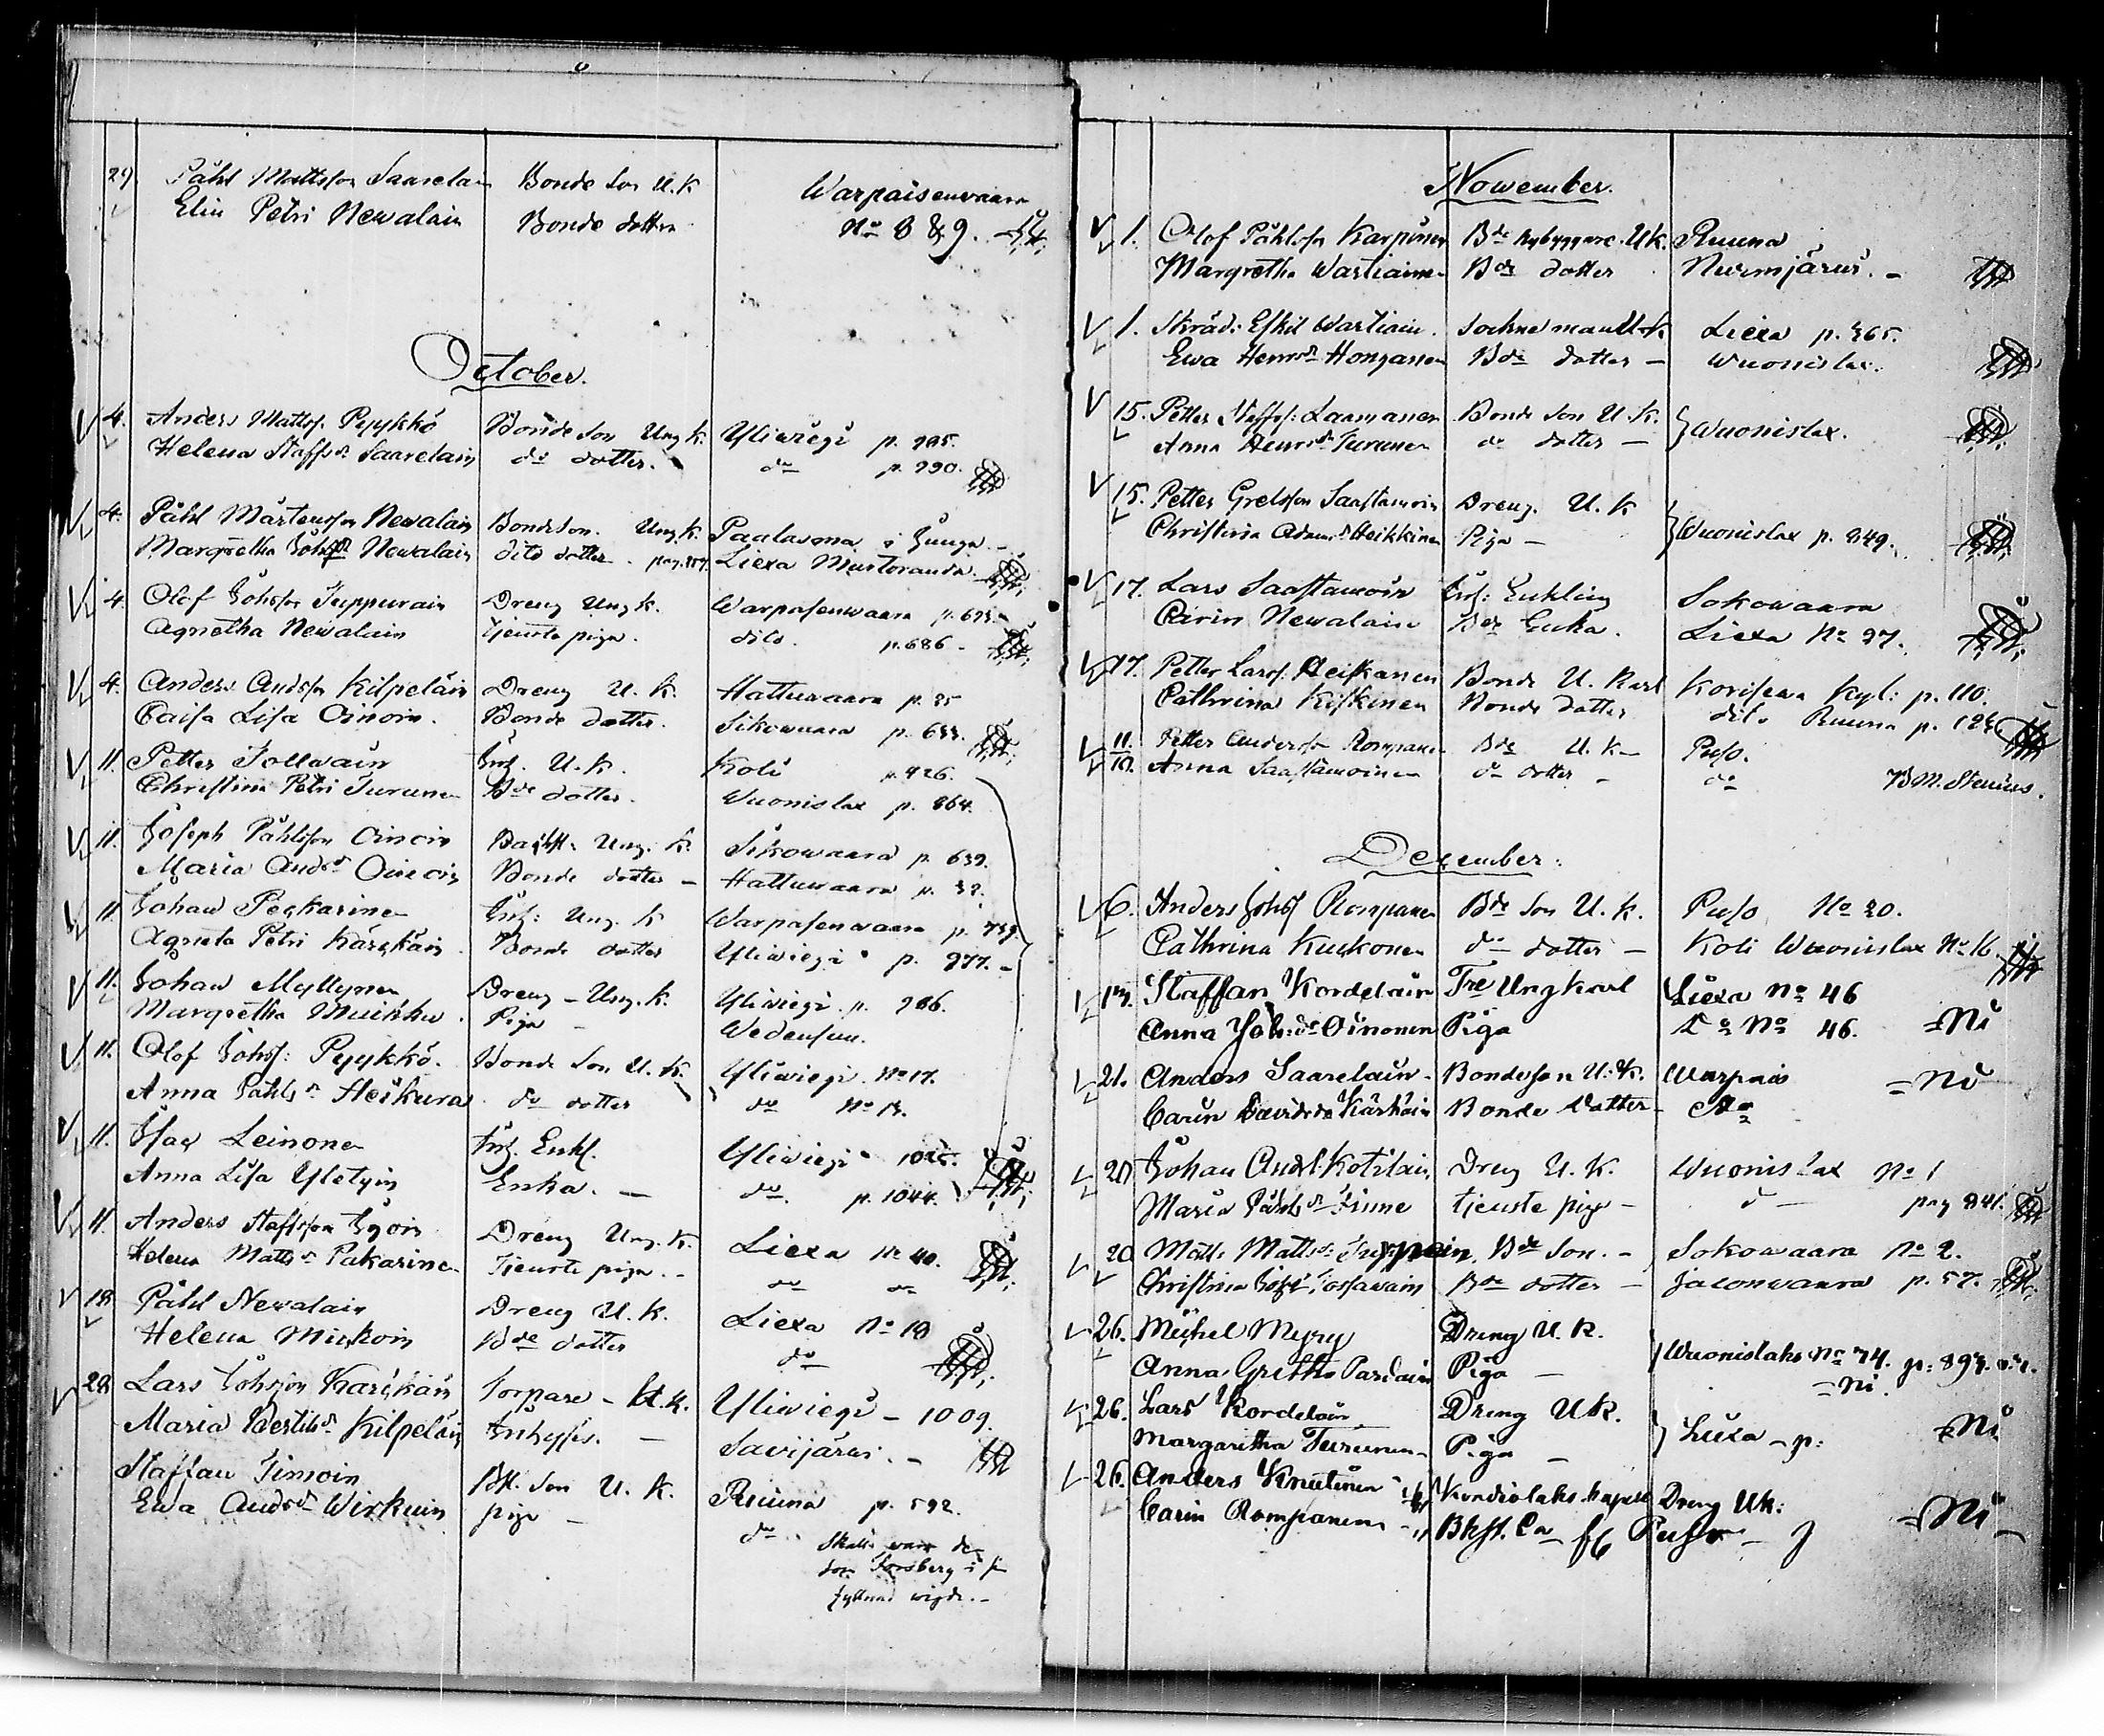 29. Påhl Mattsson Saarelain Bonde son U.K Warpaisenvaara
Elin Petri Newalain Bonde dotter No 8 & 9.
October.
4. Anders Mattss. Pyykkö Bonde son Ung k. Yliwiegi p. 995.
Helena Staffsdr Saarelain do dotter. do p. 990.
4. Påhl Mårtensson Newalain Bondeson. Ung k. Paalasma i Junga
Margretha Johsdr Newalain dito dotter. pag. Liexa Mustoranda
4. Olof Johsson Juppurain Dreng Ung k. Warpasenwaara p. 693.
Agnetha Newalain tjenste piga. dito. p. 686
4. Anders Andsson Kilpeläin Dreng U. K. Hattuwaara p. 35
Caisa Lisa Oinoin. Bonde dotter. Sikowaara p. 633.
11. Petter Tollwain Inh. U. K. Koli p. 426.
Christina Petri Turunen Bde dotter. Wuonislax p. 864.
11. Joseph Påhlsson Oinoin Ung. K. Sikowaara p. 639.
Maria Andsdr Oinoin Bonde dotter Hattuwaara p. 32.
11. Johan Peckarinen Inh: Ung. K Warpasenwaara p. 739.
Agneta Petri Kärckäin Bonde dotter Yliwiegi p. 977.
11. Johan Myllynen Dreng Ung. k. Yliwiegi p. 966.
Margretha Muikku. Piga Wedensuu.
11. Olof Johss: Pyykkö. Bonde son U. K. Yliwiegi No 17.
Anna Påhlsdr Heikura do dotter do No 13.
11. Isac Leinonen Inh. Enkl. Yliwiegi
Anna Lisa Yletyin Enka. do. p. 1044.
11. Anders Staffsson Dreng Ung. K. Liexa No 40.
Helena Mattsdr Pakarinen Tjenste piga. do do
18. Påhl Newalain Dreng U. K. Liexa No 18
Helena Mickoin Bde dotter do
28. Lars Johsson Karckäin Torpare U.K. Yliwiegi 1009.
Maria Bertilsdr Kilpeläin Inhyses. Savijärwi.
Staffan Timoin son U. K. Ruuna p. 592.
Ewa Andsdr Wirkuin piga do
Nowember.
1. Olof Påhlsson Karpinen Bde nybyggare U.K. Ruuna
Margretha Wartiainen Bde dotter Nurmijärwi.
1. Skräd: Eskil Wartiain. Sockneman U.K. Liexa p. 365.
Ewa Henrsdr Honganen Bde dotter Wuonislax.
15. Petter Staffs: Laamanen Bonde son U. K. Wuonislax.
Anna Henrsdr Turunen do dotter
15. Petter Grelsson Saastamoin Dreng. U. K Wuonislax p. 849.
Christina Adamsdr Heikkinen Piga
17. Lars Saastamoin Inh: Enkling Sokowaara
Carin Newalain Bde Enka. Liexa No 27.
17. Petter Larss. Heiskanen Bonde U. Karl Korisewa Kyl: p. 110.
Cathrina Kiskinen Bonde dotter dito Ruuna p.
11. Petter Andersson Rompanen Bde U. K. Puso.
10. Anna Saastamoinen do dotter do B M. Stenius.
December:
6. Anders Johss Rompanen Bde son U. K. Puso No 20.
Cathrina Kuckonen do dotter Koli Wuonislax No 16
17. Staffan Kordelain Tre Ungkarl Liexa No 46
Anna Johsdr Oinonen Piga Do No 46. Ni
21. Anders Saarelain Bondeson U. K. Warpais Ni
Carin Davidsdr Kärkäin Bonde Dotter Do
20 Johan Andss: Kotilain Dreng U. K. Wuonislax No 1
Maria Påhlsdr Timne tjenste piga do pag 841.
20 Matts Mattss: Bde Son. Sokowaara No 2.
Christina Tossawain Bde dotter Jacowaara p. 57.
26. Michel Myry Dreng U. K. Wuonislaks No 74. p: 897.
Anna Gretha Pardain Piga Ni.
26. Lars Kordelain Dreng U.K. Liexa p: Ni
Margaretha Turunen Piga
26. Anders Knutinen Kondiolaks kapell Dreng Uk:
Carin Rompanen Puso Ni